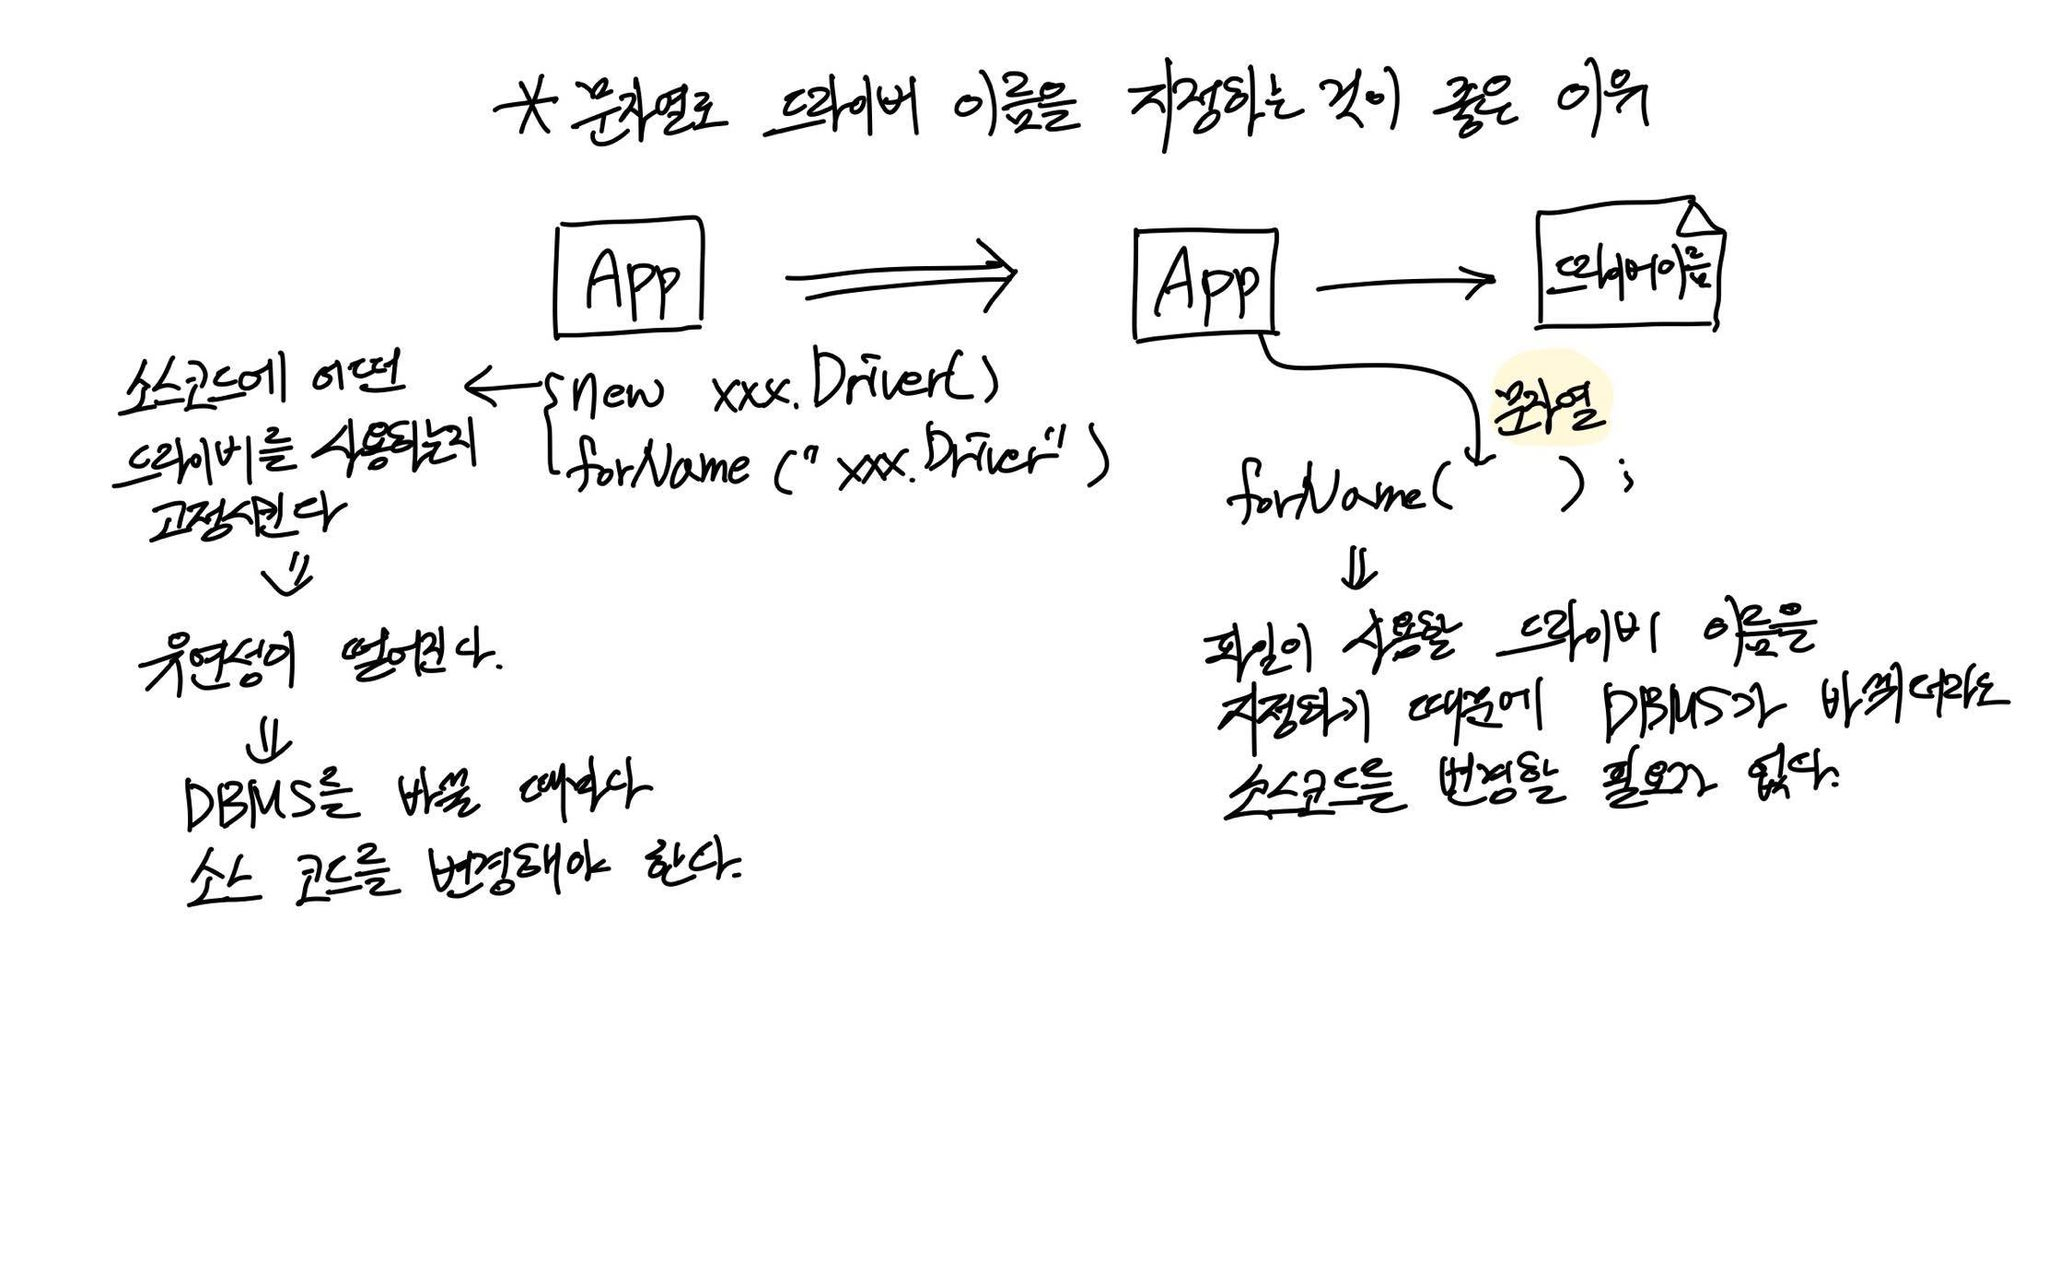 * 문자열로 드라이버 이름을 지정하는 것이 좋은 이유
App
new xxx.Driver()
forName("xxx.Driver")
소스코드에 어떤
드라이버를 사용하는지
고정시킨다
유연성이 떨어진다.
DBMS를 바꿀 때마다
소스 코드를 변경해야 한다.
App
드라이버이름
문자열
forName( );
파일이 사용할 드라이버 이름을
지정하기 때문에 DBMS가 바뀌더라도
소스코드를 변경할 필요가 없다.